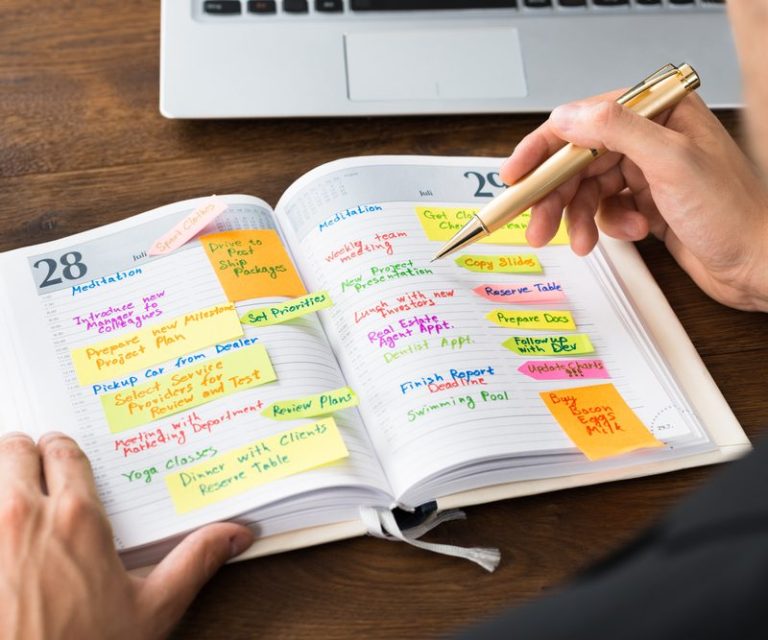 28
Juli
Spare Clothes
Meditation
Drive to
Post
Ship
Packages
Introduce new
Manager to
Colleagues
Set Priorities
Prepare new Milestone
Project Plan
Pickup Car from Dealer
Select Service
Providers for
Review and Test
Review Plans
Meeting with
Marketing Department
Yoga Classes
Dinner with Clients
Reserve Table
Juli
29
Meditation
Weekly team
meeting
New Project
Presentation
Lunch with new
Investors
Real Estate
Agent Appt.
Dentist Appt.
Finish Report
Deadline
Swimming Pool
Copy Slides
Reserve Table
Prepare Docs
Follow up
with Dev
Update Charts
!!!
Buy
Bacon
Eggs
Milk